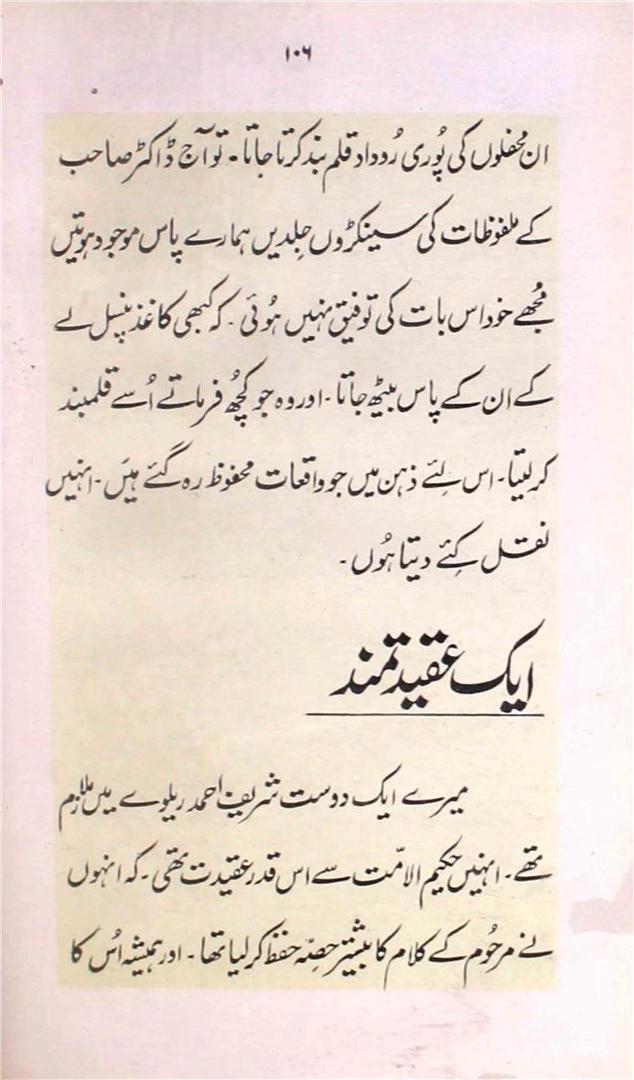 ۱۰۶
ان محفلوں کی پُوری رُوداد قلم بند کرتا جاتا ۔ تو آج ڈاکٹر صاحب
کے ملفوظات کی سینکڑوں جلدیں ہمارے پاس موجود ہوتیں
مُجھے خود اس بات کی توفیق نہیں ہُوئی ۔ کہ کبھی کاغذ پنسل لے
کے ان کے پاس بیٹھ جاتا ۔ اور وہ جو کچُھ فرماتے اُسے قلمبند
کر لیتا ۔ اس لئے ذہن میں جو واقعات محفوظ رہ گئے ہیَں ۔ انہیں
نقل کِئے دیتا ہُوں ۔
ایک عقیدتمند
میرے ایک دوست شریف احمد ریلوے میں ملازم
تھے ۔ انہیں حکیم الامّت سے اس قدر عقیدت تھی ۔ کہ انہوں
نے مرحُوم کے کلام کا بیشتر حِصّہ حفظ کر لیا تھا ۔ اور ہمیشہ اُس کا